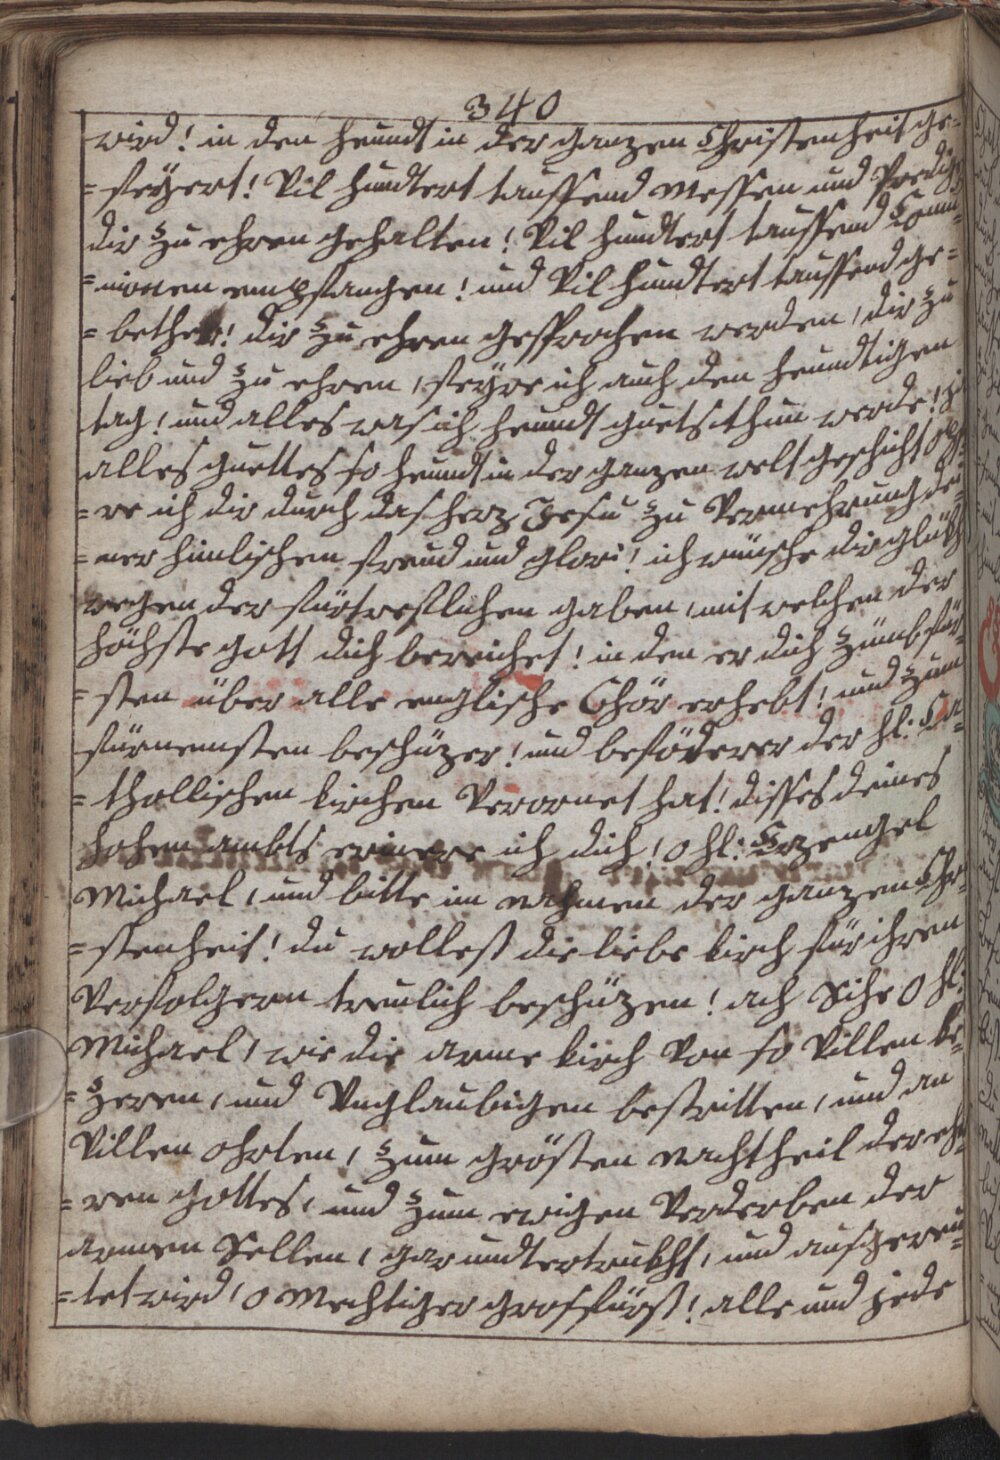 340
wird! in den heundt in der ganzen Christenheit ge-
=feyert! Vil hundtert taussend Messen und Predig
dir zu ehren gehalten! Vil hundtert taussend Comu-
=nionen empfangen! und Vil hundtert taussend ge-
=bether! dir zu ehren gesprochen werden, dir zu
lieb und zu ehren, feyre ich auch den heundtigen
tag! und alles was ich heundt guets thun werde!
alles guettes so heundt in der ganzen welt geschicht opfe-
=re ich dir durch das herz Jesu zu Vermehrung dei-
=ner himlischen freud und glori! ich wünsche dir glükh
wegen der fürtreflichen gaben, mit welchen der
höchste gott dich bereichet! in den er dich zum für-
=sten über alle englische Chör erhebt! und zum
fürnemsten beschüzer! und beförderer der hl: Ca-
=thollischen kirchen Verornet hat! disses deines
hohen ambts erinere ich dich, O hl: Erzengel
Michael, und bitte im nahmen der ganzen Chri-
=stenheit! du wollest die liebe kirch für ihren
Verfolgern treulich beschüzen! ach Sihe O hl:
Michael, wie die arme kirch Von so Villen ke-
=zeren, und Unglaubigen bestritten, und an
Villen ohrten, zum grösten nachtheil der eh-
=ren gottes, und zum ewigen Verderben der
armen Sellen, gar undtertrukht, und ausgereu-
=tet wird, O Mechtiger grosfürst! alle und jede